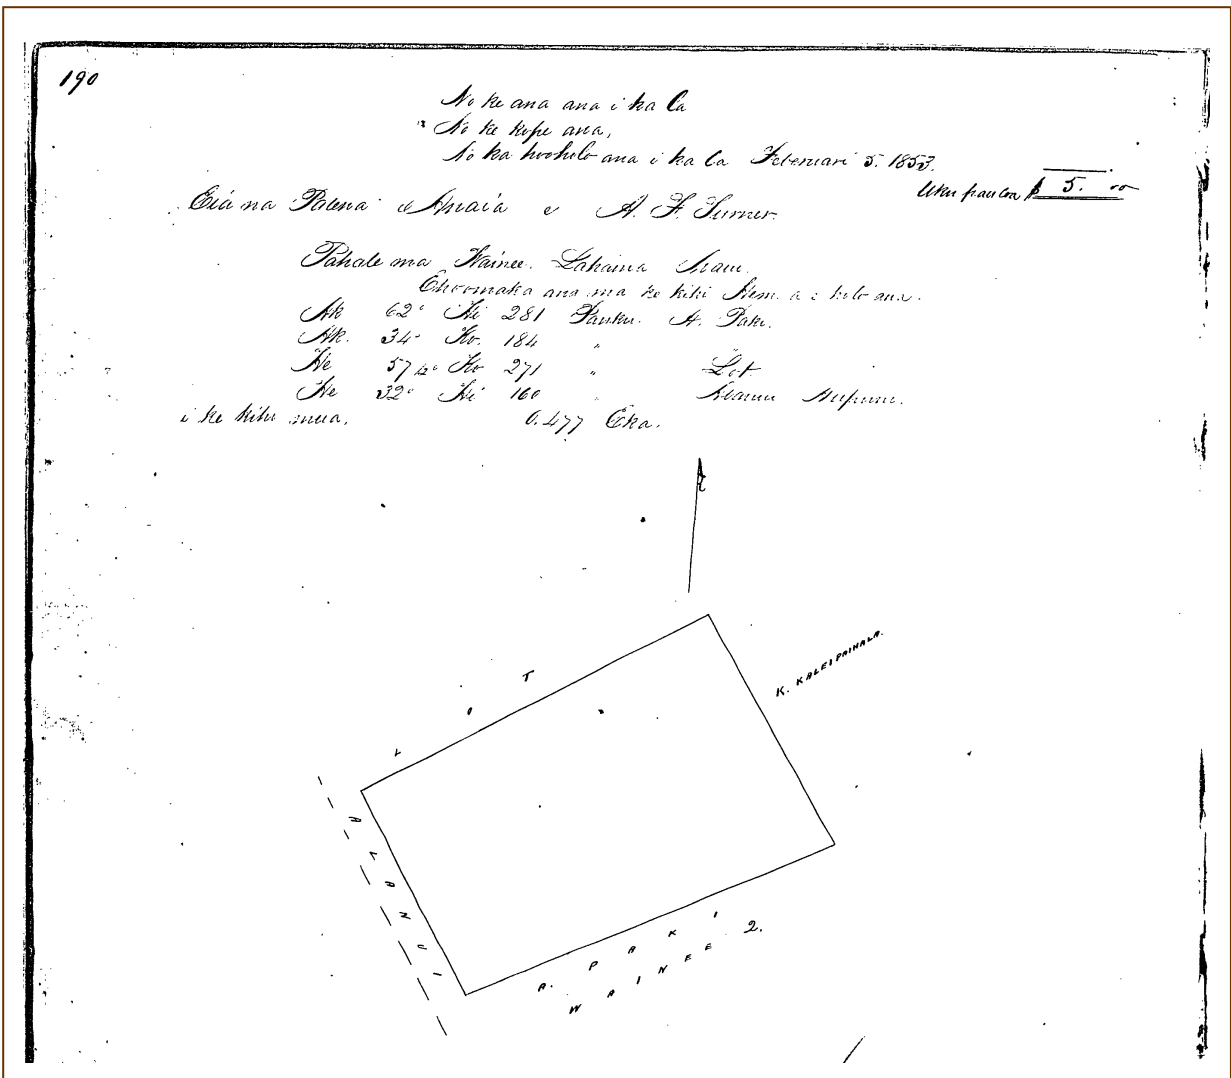 190
No ke ana ana i ka la
No ke kope ana,
No ka hooholo ana i ka la Feberuari 5. 1853.
Uku pau loa $ 5. 00
Eia na Palena e A. F. Turner.
Pahale ma Wainee. Lahaina Maui.
E hoomaka ana ma ke kihi Hem. a e holo ana.
Ak 62° Hi 281 Pauku. A. Paki.
Ak. 34° Ko. 184 "
He 57 1/2° Ko 271 " Lot
He 32° Hi 160 "
i ke kihi mua. 0.477 Eka.
L O T
K. KALEIPAIHALA.
ALANUI
A. PAKI
WAINEE 2.